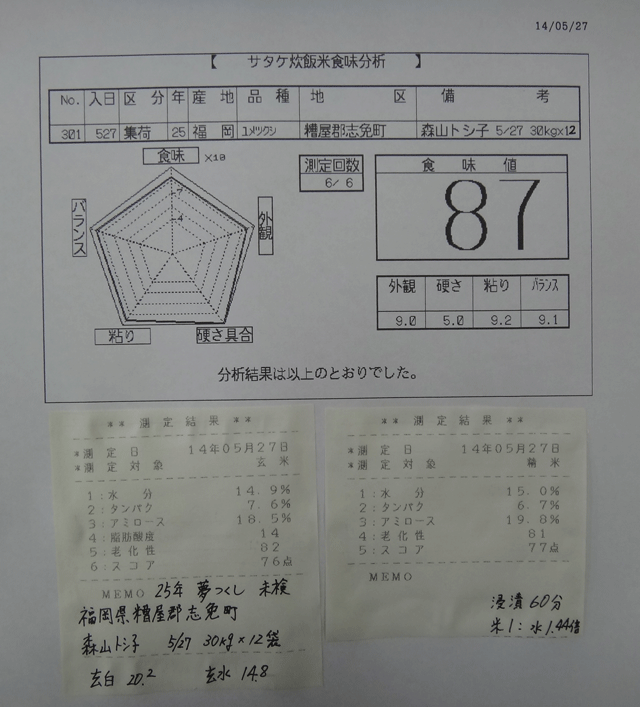 14/05/27
【 サタケ炊飯米食味分析 】
No. 入日 区分 年 産地 品種 地区 備考
301 527 集荷 25 福岡 ユメツクシ 糟屋郡志免町 森山トシ子 5/27 30kgx12
食味 X10
7
4
バランス
外観
粘り
硬さ具合
測定回数
6/ 6
食味値
87
外観 硬さ 粘り バランス
9.0 5.0 9.2 9.1
分析結果は以上のとおりでした。
** 測定結果 **
*測定日 14年05月27日
*測定対象 玄米
1:水分 14.9%
2:タンパク 7.6%
3:アミロース 18.5%
4:脂肪酸度 14
5:老化性 82
6:スコア 76点
MEMO 25年 夢つくし 未検
福岡県糟屋郡志免町
森山トシ子 5/27 30kg×12袋
玄白 20.2 玄水 14.8
** 測定結果 **
*測定日 14年05月27日
*測定対象 精米
1:水分 15.0%
2:タンパク 6.7%
3:アミロース 19.8%
4:老化性 81
5:スコア 77点
MEMO
浸漬60分
米1:水1.44倍